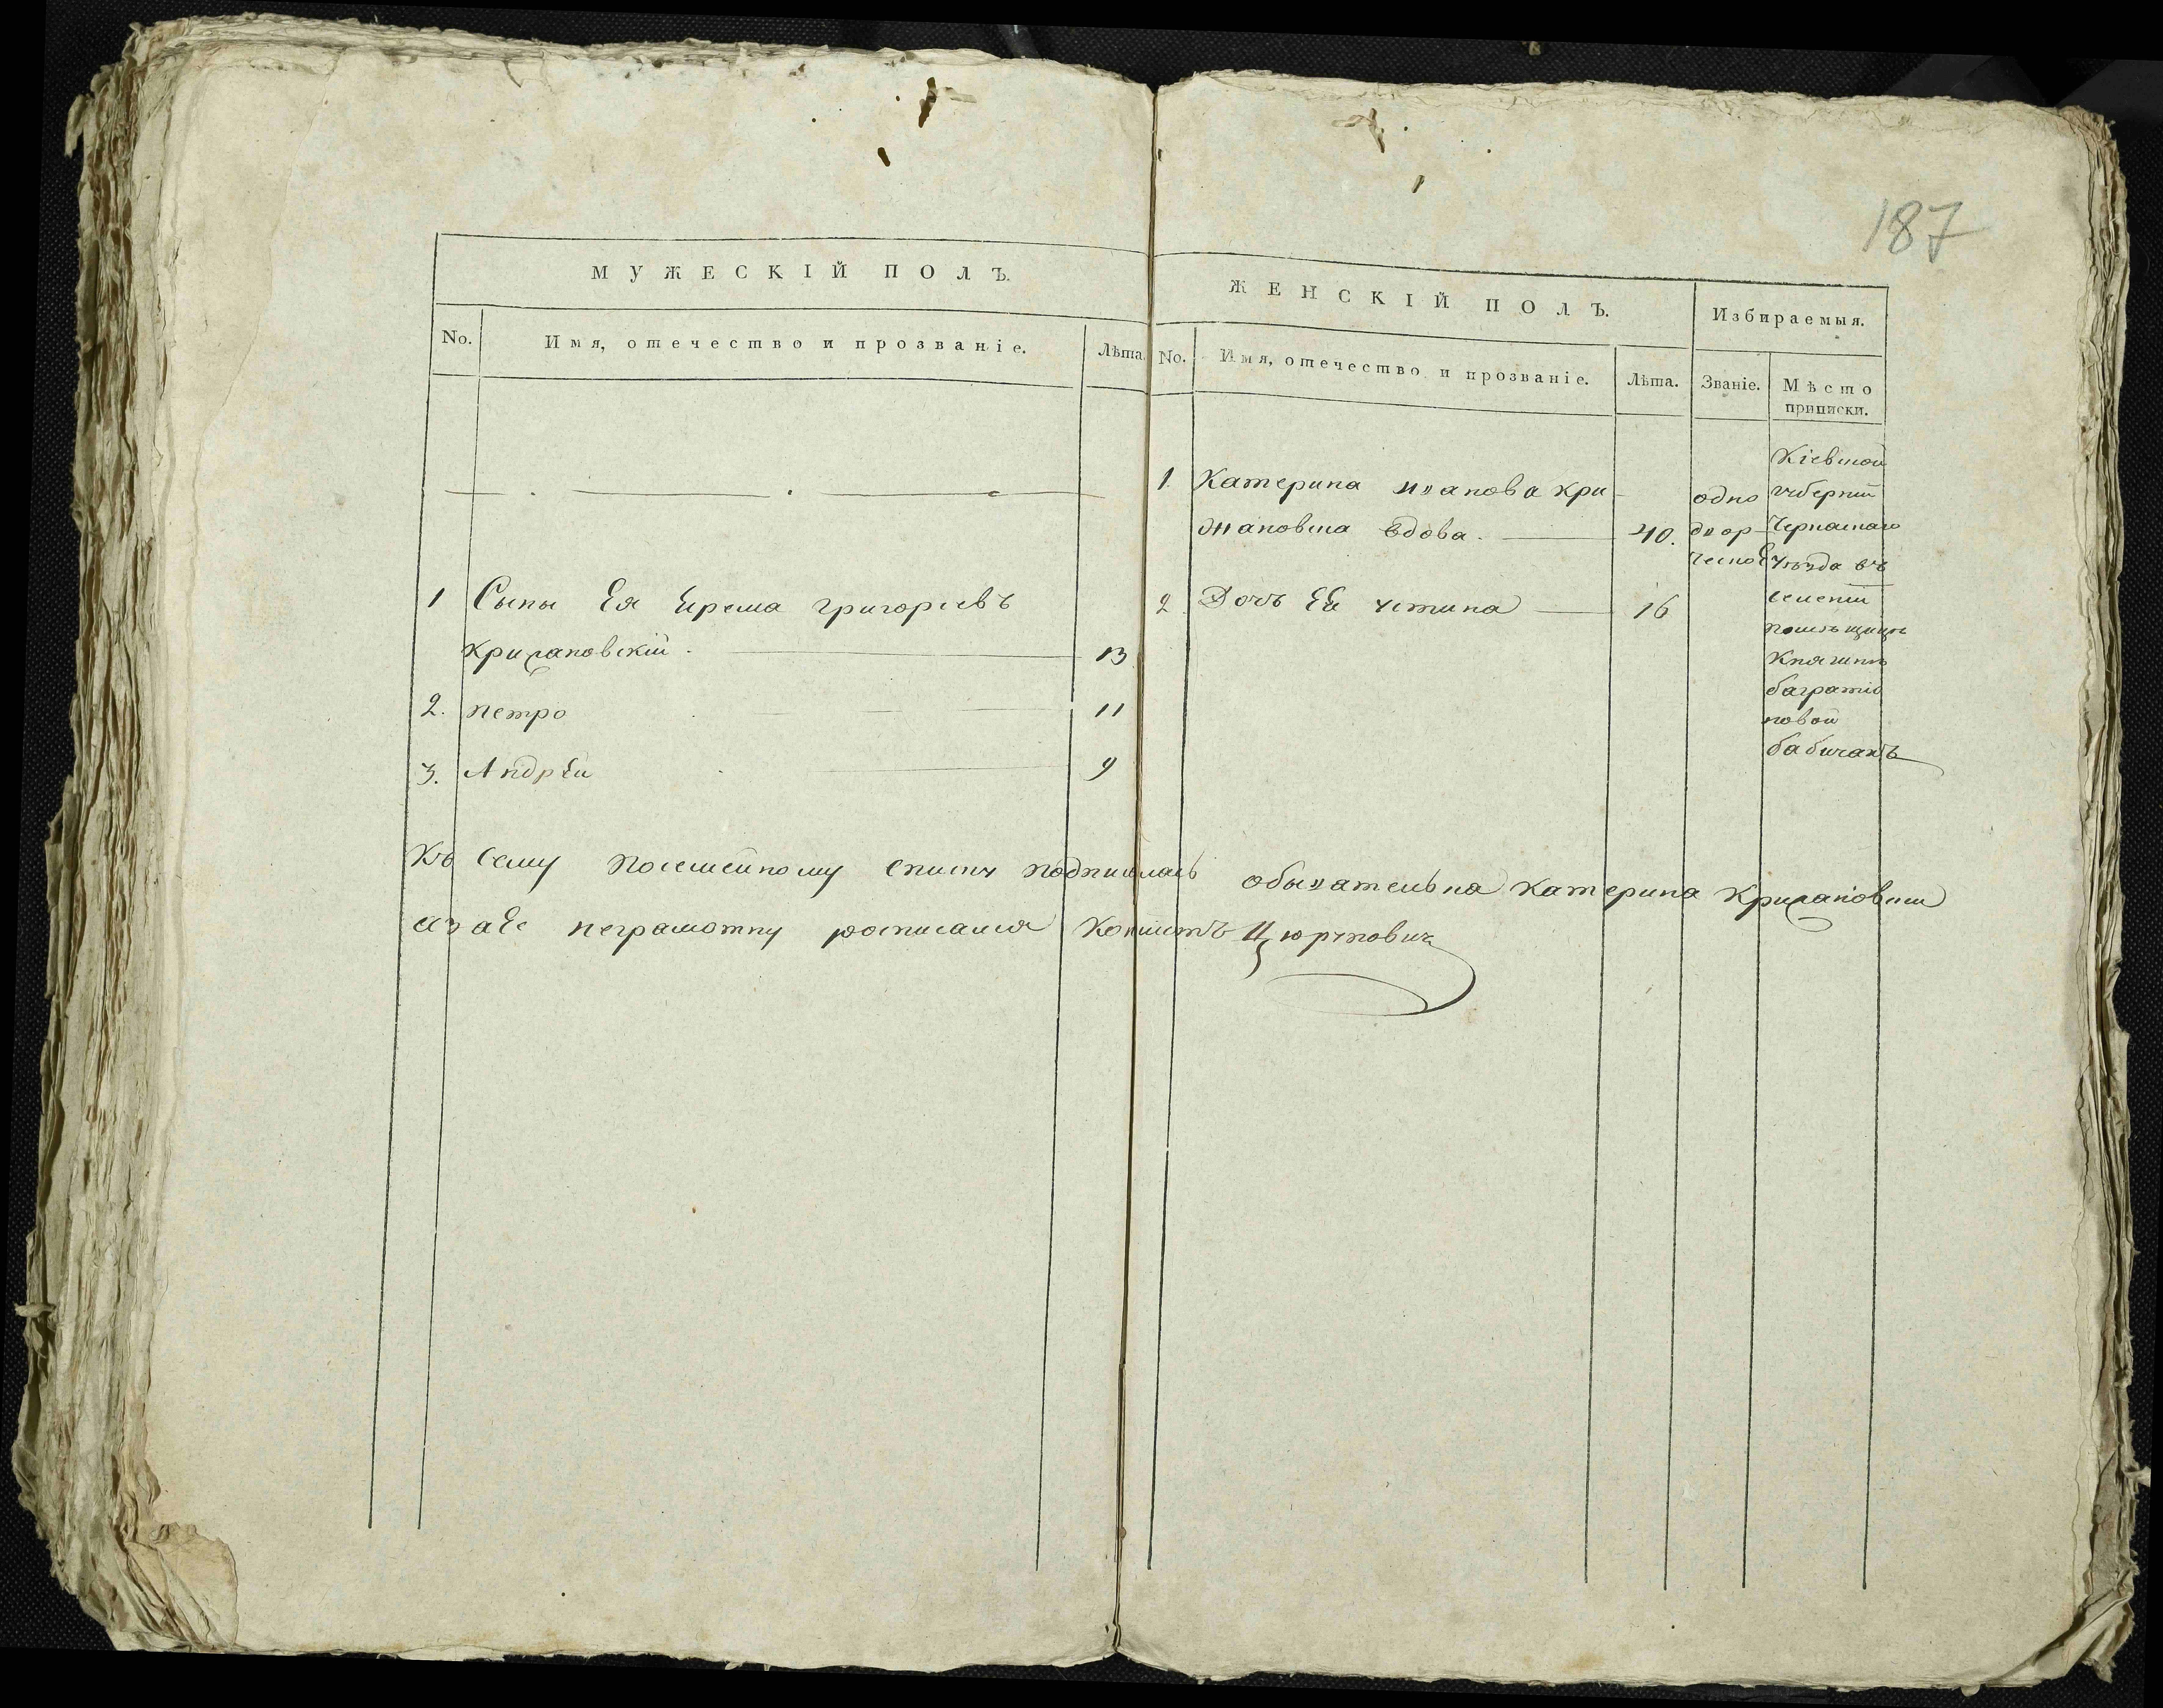 187
МУЖЕСКІЙ ПОЛЪ.
No.
Имя, отечество и прозваніе.
Лѣта.
1 Сыны Ея Ерема григорıевъ
крижановскій. 13
2. петро 11
3. Андрѣй 9
ЖЕНСКІЙ ПОЛЪ.
No.
Имя, отечество и прозваніе.
Лѣта.
Избираемыя.
Званіе.
Мѣсто
приписки.
1. Катерина иванова кри
жановска вдова. 40.
2 Дочъ Ея 16
одно
двор
ческое
Кіевской
губерніи
Черкаскаго
уѣзда въ
селеніи
помѣщицѣ
Княгинѣ
багратіо
новой
бабичахъ
Къ сему посемейному списку подписалась обывателька катерина крижановска
азаЕе неграмотну росписался